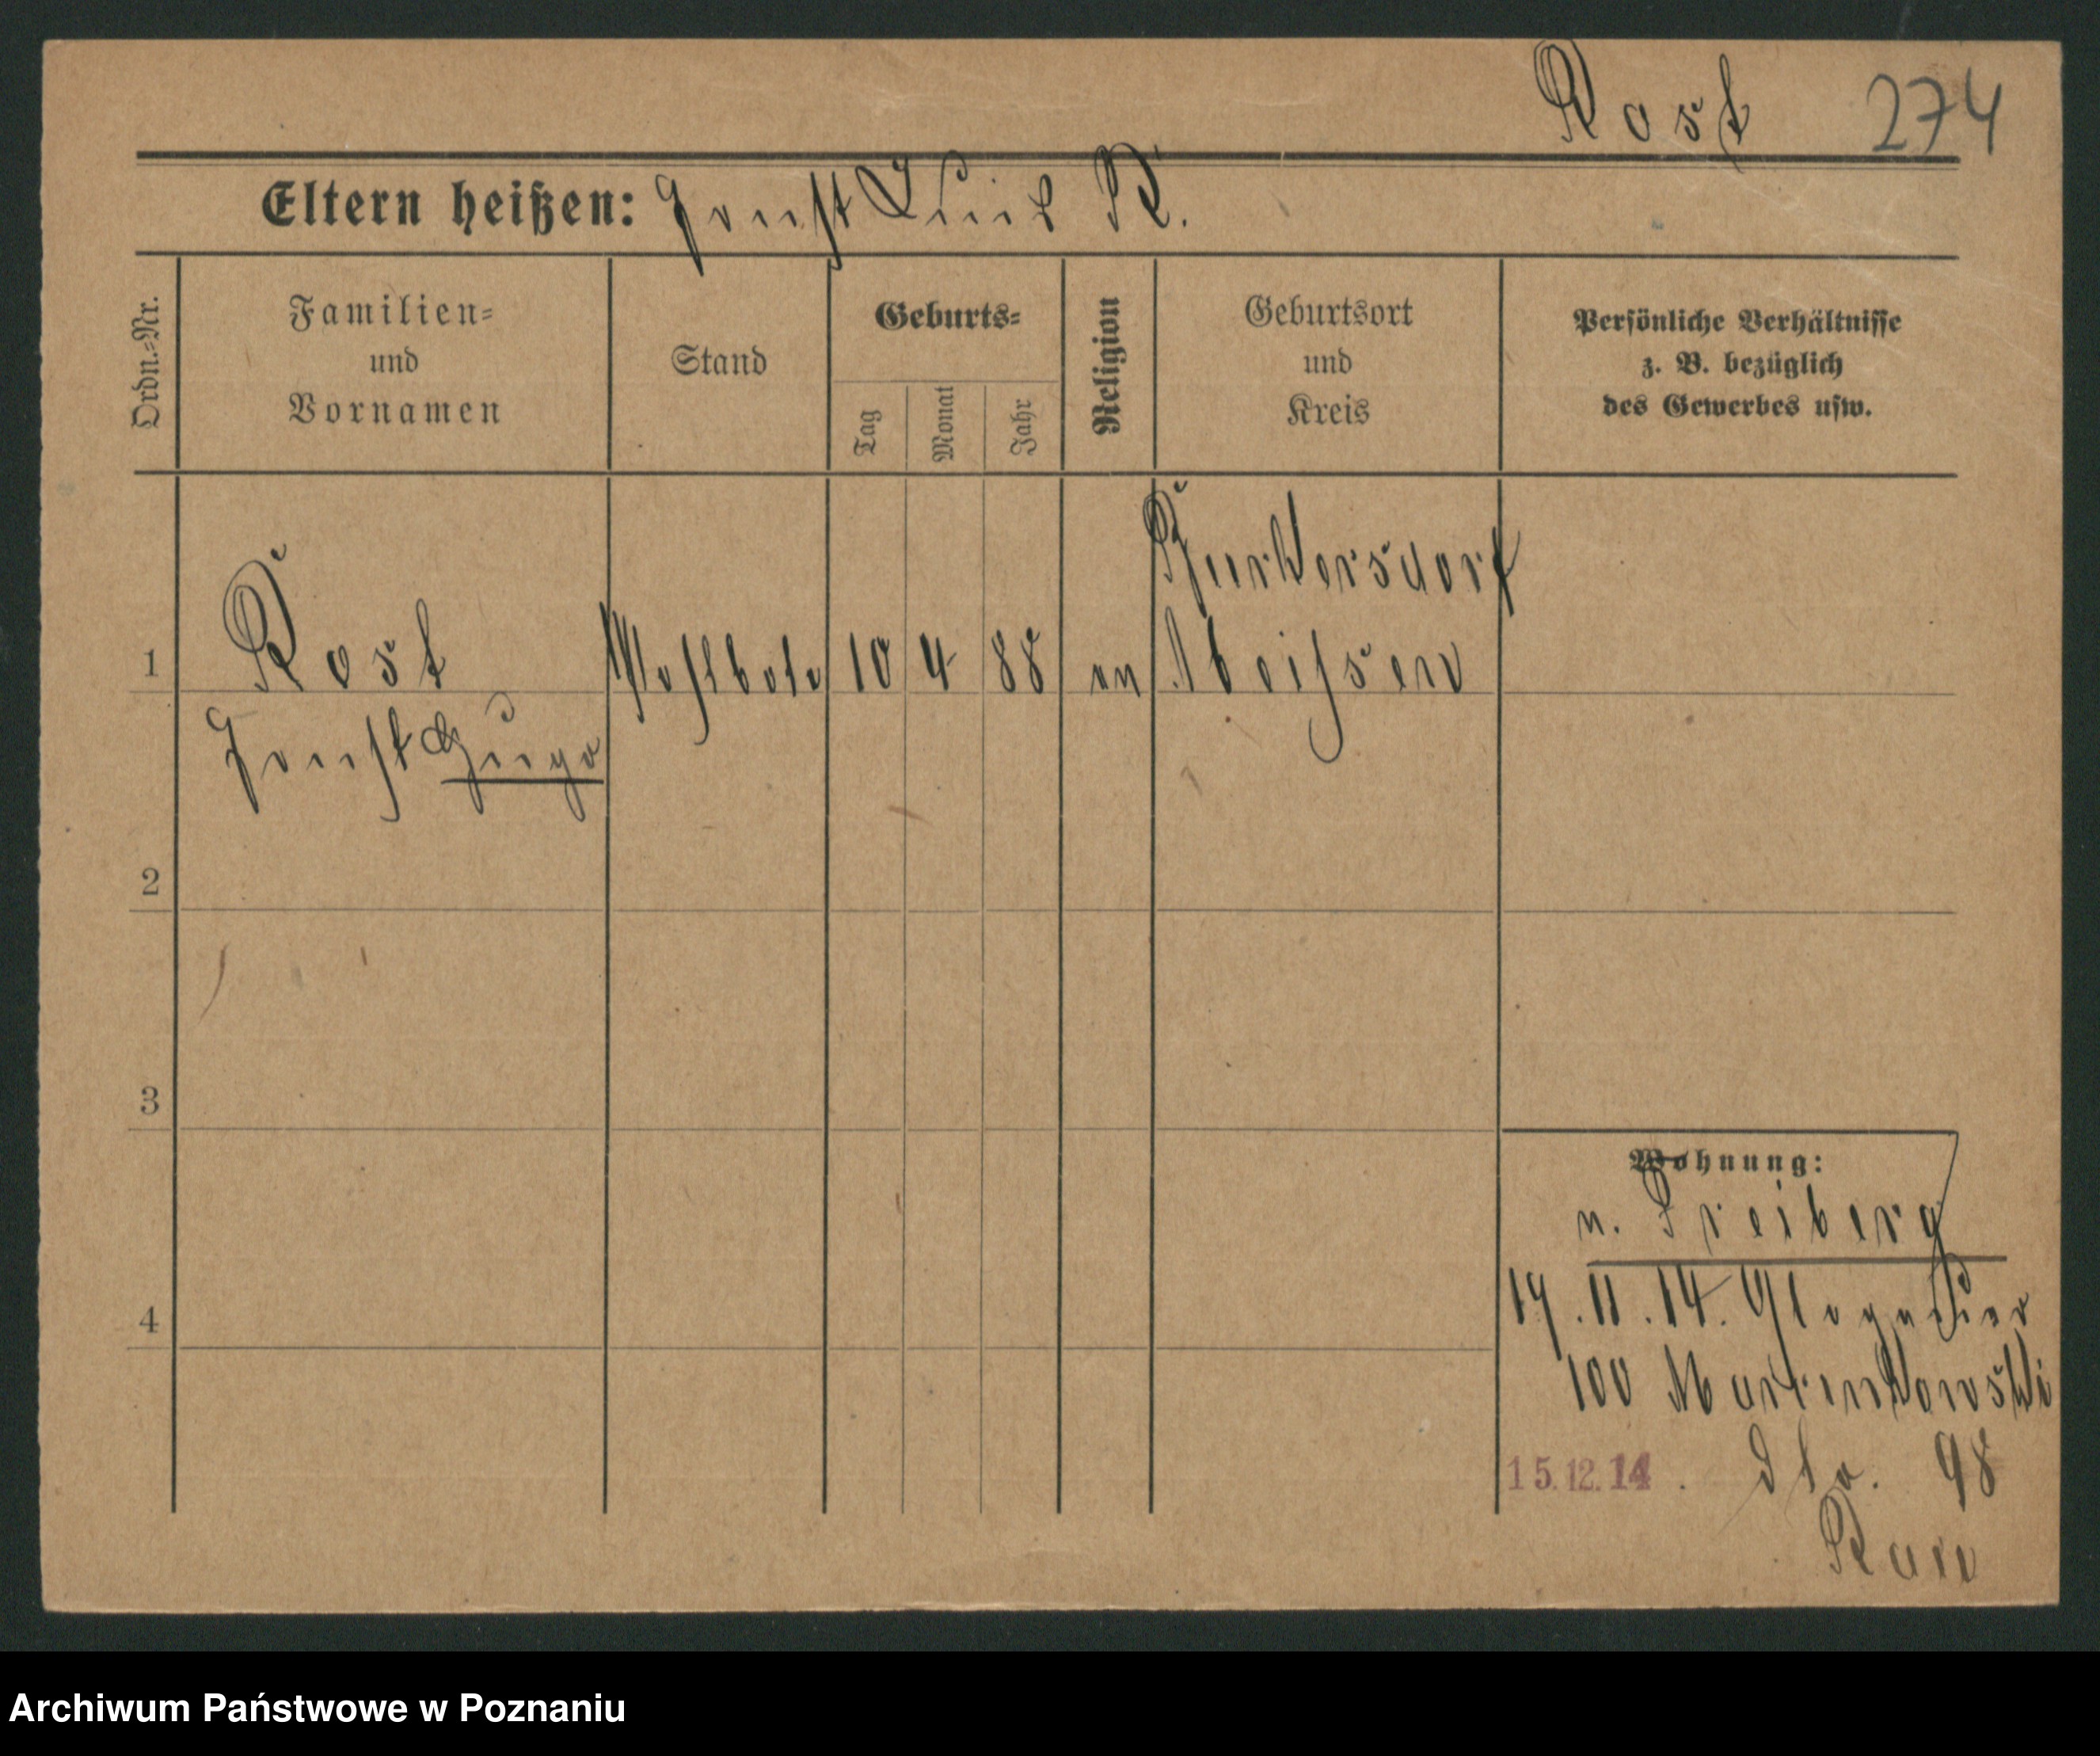 Rost 274
Eltern heißen: Ernst Emil R.
Ordn.=Nr.
Familien=
und
Vornamen
Stand
Geburts=
Tag
Monat
Jahr
Religion
Geburtsort
und
Kreis
Persönliche Verhältnisse
z. B. bezüglich
des Gewerbes usw.
Burkersdorf
1 Rost 10 4 88 ev Meissen
Ernst Hugo
2
3
Wohnung:
n. Freiberg
4
19.11.14. Glogauer
100 Marcinkowski
15.12.14. 98